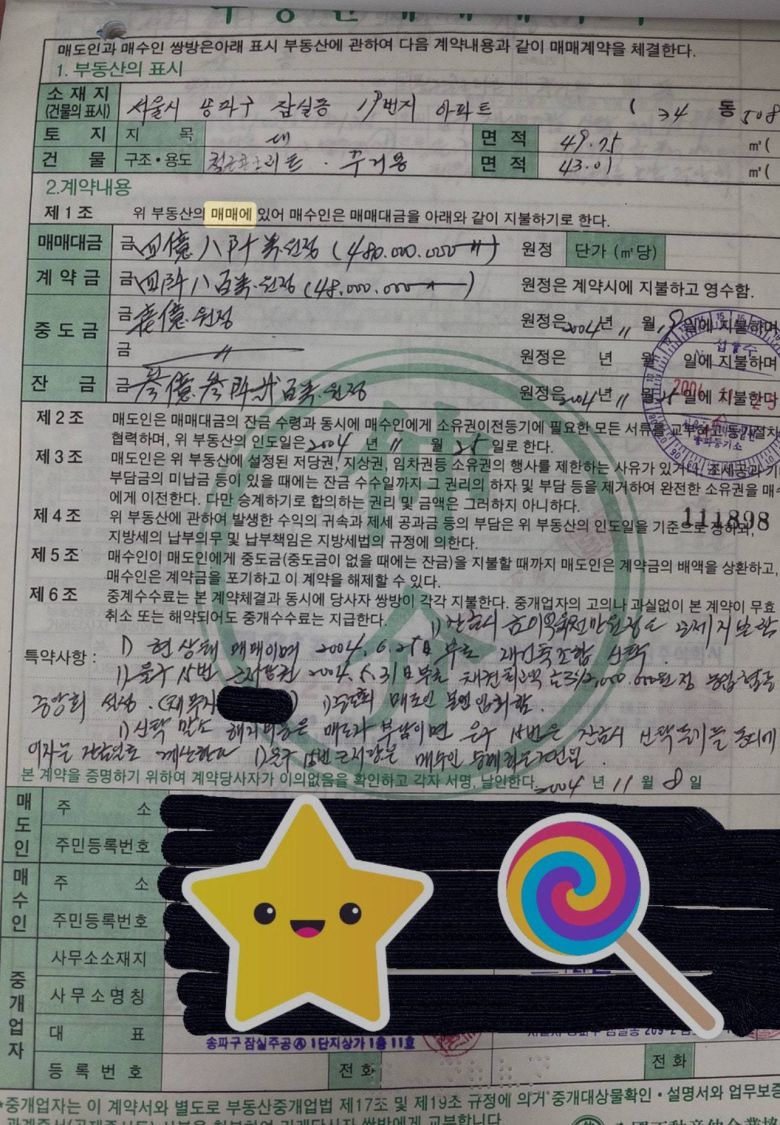 매도인과 매수인 쌍방은아래 표시 부동산에 관하여 다음 계약내용과 같이 매매계약을 체결한다.
1. 부동산의 표시
소 재 지 (건물의 표시) 서울시 송파구 잠실동 19번지 아파트 ( 34 동 508
토 지 지 목 대 면 적 49.75 ㎡(
건 물 구조·용도 철근콘크리트 · 주거용 면 적 43.01 ㎡(
2.계약내용
제 1 조 위 부동산의 매매에 있어 매수인은 매매대금을 아래와 같이 지불하기로 한다.
매매대금 금 四億八阡萬원정 (480.000.000 〃) 원정 단가 (㎡당)
계 약 금 금 四阡八百萬원정 (48,000.000 ) 원정은 계약시에 지불하고 영수함.
중 도 금 금 壹億원정 원정은 2004년 11 월 일에 지불하며
금 〃 원정은 년 월 일에 지불하며
잔 금 금 參億參阡 百萬원정 원정은 2004년 11 월 25 일에 지불한다
제 2 조 매도인은 매매대금의 잔금 수령과 동시에 매수인에게 소유권이전등기에 필요한 모든 서류를 교부하고 등기절차
협력하며, 위 부동산의 인도일은 2004 년 11 월 25 일로 한다.
제 3 조 매도인은 위 부동산에 설정된 저당권, 지상권, 임차권등 소유권의 행사를 제한하는 사유가 있거나, 조세공과 기
부담금의 미납금 등이 있을 때에는 잔금 수수일까지 그 권리의 하자 및 부담 등을 제거하여 완전한 소유권을 매수
에게 이전한다. 다만 승계하기로 합의하는 권리 및 금액은 그러하지 아니하다.
제 4 조 위 부동산에 관하여 발생한 수익의 귀속과 제세 공과금 등의 부담은 위 부동산의 인도일을 기준으로 정하되,
111898
지방세의 납부의무 및 납부책임은 지방세법의 규정에 의한다.
제 5 조 매수인이 매도인에게 중도금(중도금이 없을 때에는 잔금)을 지불할 때까지 매도인은 계약금의 배액을 상환하고,
매수인은 계약금을 포기하고 이 계약을 해제할 수 있다.
제 6 조 중개수수료는 본 계약체결과 동시에 당사자 쌍방이 각각 지불한다. 중개업자의 고의나 과실없이 본 계약이 무효
취소 또는 해약되어도 중개수수료는 지급한다.
특약사항 : 1) 현 상태 매매이며 2004. 6. 25日 부로 재건축조합 신탁.
1) 을구 15번 근저당권 2004. 5. 31日 부로 농협
중앙회 설정. (채무자 ) 1) 매도인
1) 신탁 말소 매도자 부담이며 을구 15번은 잔금시
이자는 잔금일로 계산한다 1) 을구 15번 근저당은 매수인
본 계약을 증명하기 위하여 계약당사자가 이의없음을 확인하고 각자 서명, 날인한다. 2004 년 11 월 8 일
매도인 주 소
주민등록번호
매수인 주 소
주민등록번호
중개업자 사무소소재지
사 무 소 명 칭
대 표
송파구 잠실주공 Ⓐ 1단지상가 1층 11호
등 록 번 호 전 화 전 화
*중개업자는 이 계약서와 별도로 부동산중개업법 제17조 및 제19조 규정에 의거 중개대상물확인·설명서와 업무보증